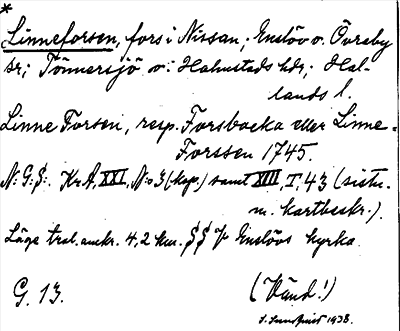 *
Linneforsen, fors i Nissan; Enslöv o. Övraby
sr; Tönnersjö o: Halmstads hdr; Hal-
lands l.
Linne Forsen, resp. Forsbacka eller Linne-
Forssen 1745.
N: G: S: Kr A, XXI, N:o 3 (kop.) samt XIII, I, 43 (sistn.
m. kartbeskr.).
Läge trol. omkr. 4,2 km. fr Enslövs kyrka.
G. 13.
(Vänd!)
1938.